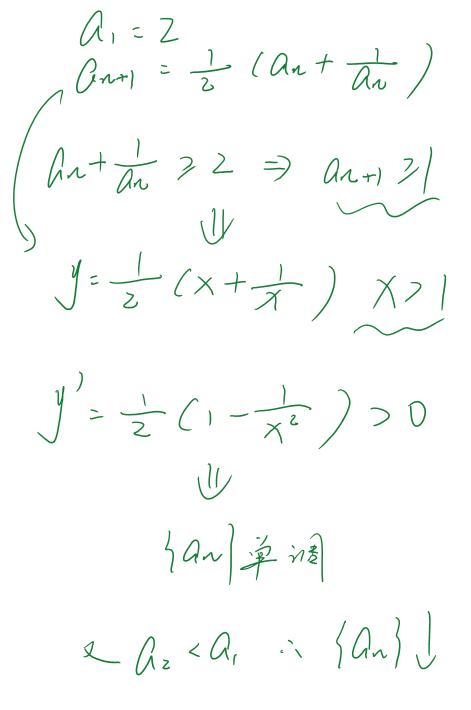 a₁ = 2
aₙ₊₁ = 1/2 (aₙ + 1/aₙ)
aₙ + 1/aₙ ≥ 2 ⇒ aₙ₊₁ ≥ 1
⇓
y = 1/2 (x + 1/x) x > 1
y' = 1/2 (1 - 1/x²) > 0
⇓
{aₙ} 单调
又 a₂ < a₁ ∴ {aₙ} ↓